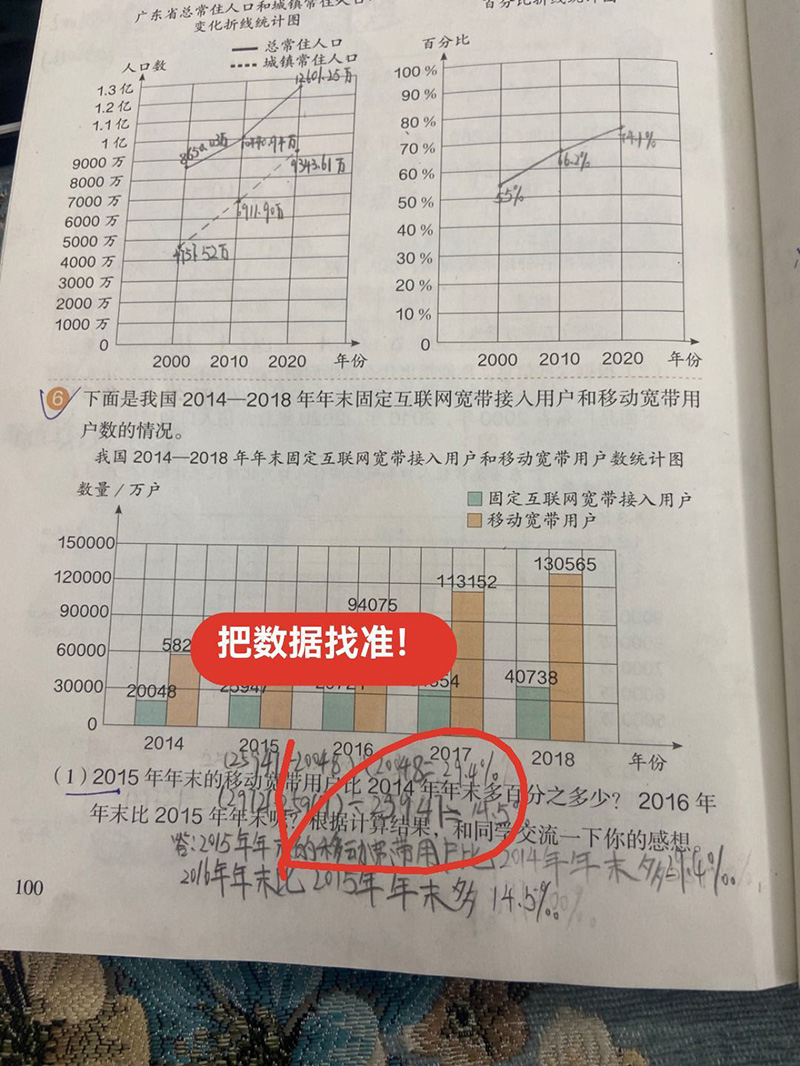 广东省总常住人口和城镇常住人口
变化折线统计图
百分比折线统计图
总常住人口
城镇常住人口
人口数
1.3 亿
1.2 亿
1.1 亿
1 亿
9000 万
8000 万
7000 万
6000 万
5000 万
4000 万
3000 万
2000 万
1000 万
0
12601.25万
9343.61万
6911.90万
2000 2010 2020 年份
百分比
100 %
90 %
80 %
70 %
60 %
50 %
40 %
30 %
20 %
10 %
0
55%
66.2%
74.1%
2000 2010 2020 年份
6 下面是我国 2014—2018 年年末固定互联网宽带接入用户和移动宽带用
户数的情况。
我国 2014—2018 年年末固定互联网宽带接入用户和移动宽带用户数统计图
数量 / 万户
固定互联网宽带接入用户
移动宽带用户
150000
120000
90000
60000
30000
0
20048
582
25947
94075
113152
40738
130565
把数据找准!
2014 2015 2016 2017 2018 年份
(25947-20048)÷20048=29.4%
(1) 2015 年年末的移动宽带用户比 2014 年年末多百分之多少? 2016 年
年末比 2015 年年末呢? 根据计算结果,和同学交流一下你的感想。
答:2015年年末的移动宽带用户比2014年年末多29.4%
2016年年末比2015年年末多14.5%
100